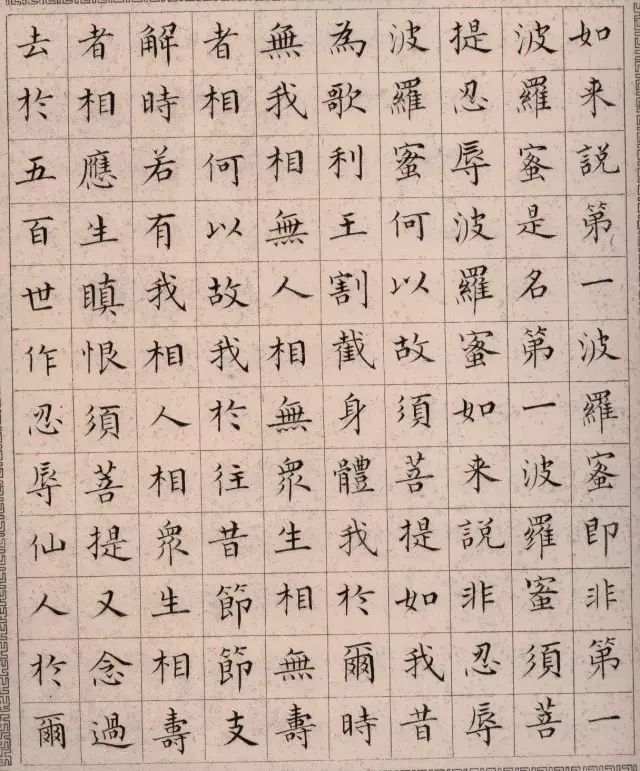 如来說第一波羅蜜即非第一
波羅蜜是名第一波羅蜜須菩
提忍辱波羅蜜如来說非忍辱
波羅蜜何以故須菩提如我昔
為歌利王割截身體我於爾時
無我相無人相無衆生相無壽
者相何以故我於往昔節節支
解時若有我相人相衆生相壽
者相應生瞋恨須菩提又念過
去於五百世作忍辱仙人於爾